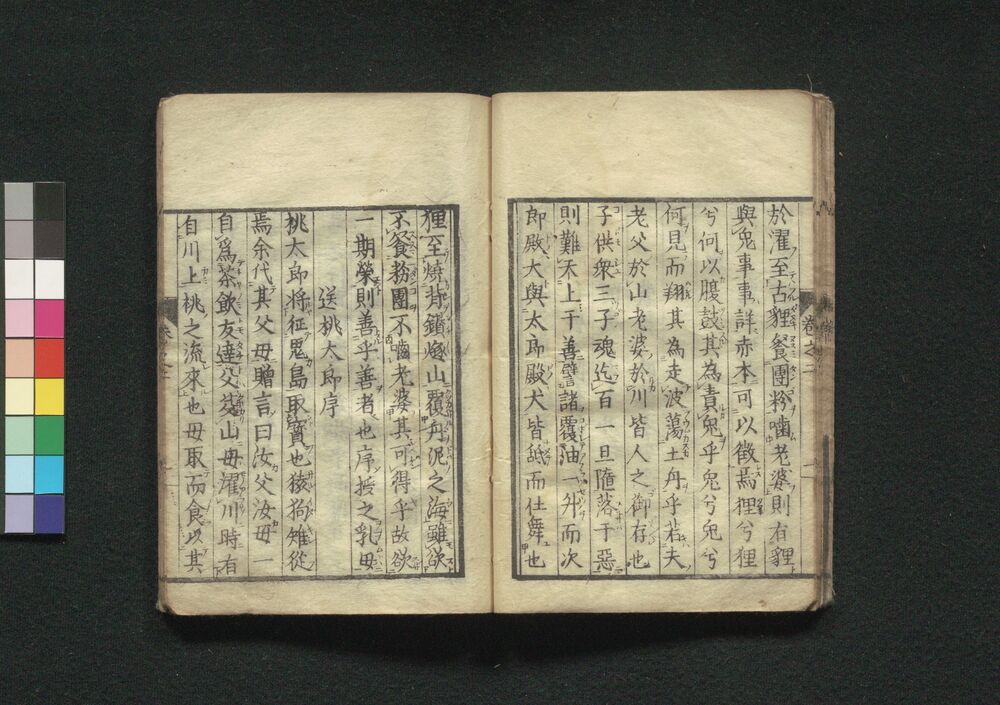 於濯至古貍餐團粉嚙老婆則有貍
與兎事事詳赤本可以徵焉狸兮狸
兮何以腹鼓其為責兎乎兎兮兎兮
何見而翔其為走波蕩土舟乎若夫
老父於山老婆於川皆人之御存也
子供衆三子魂迄百一旦隨落于惡
則難天上干善譬諸覆油一升而次
郎殿犬與太郎殿犬皆舐而仕舞也
狸至燒背鎖燧山覆舟泥之海雖欲
不餐粉團不嚙老婆其可得乎故欲
一期榮則善乎善者也序授之乳母
送桃太郎序
桃太郎將征鬼島取寳也猿狗雉從
焉余代其父母贈言曰汝父汝母一
自為茶飲友達父芟山母濯川時有
自川上桃之流來也母取而食以其
卷之二